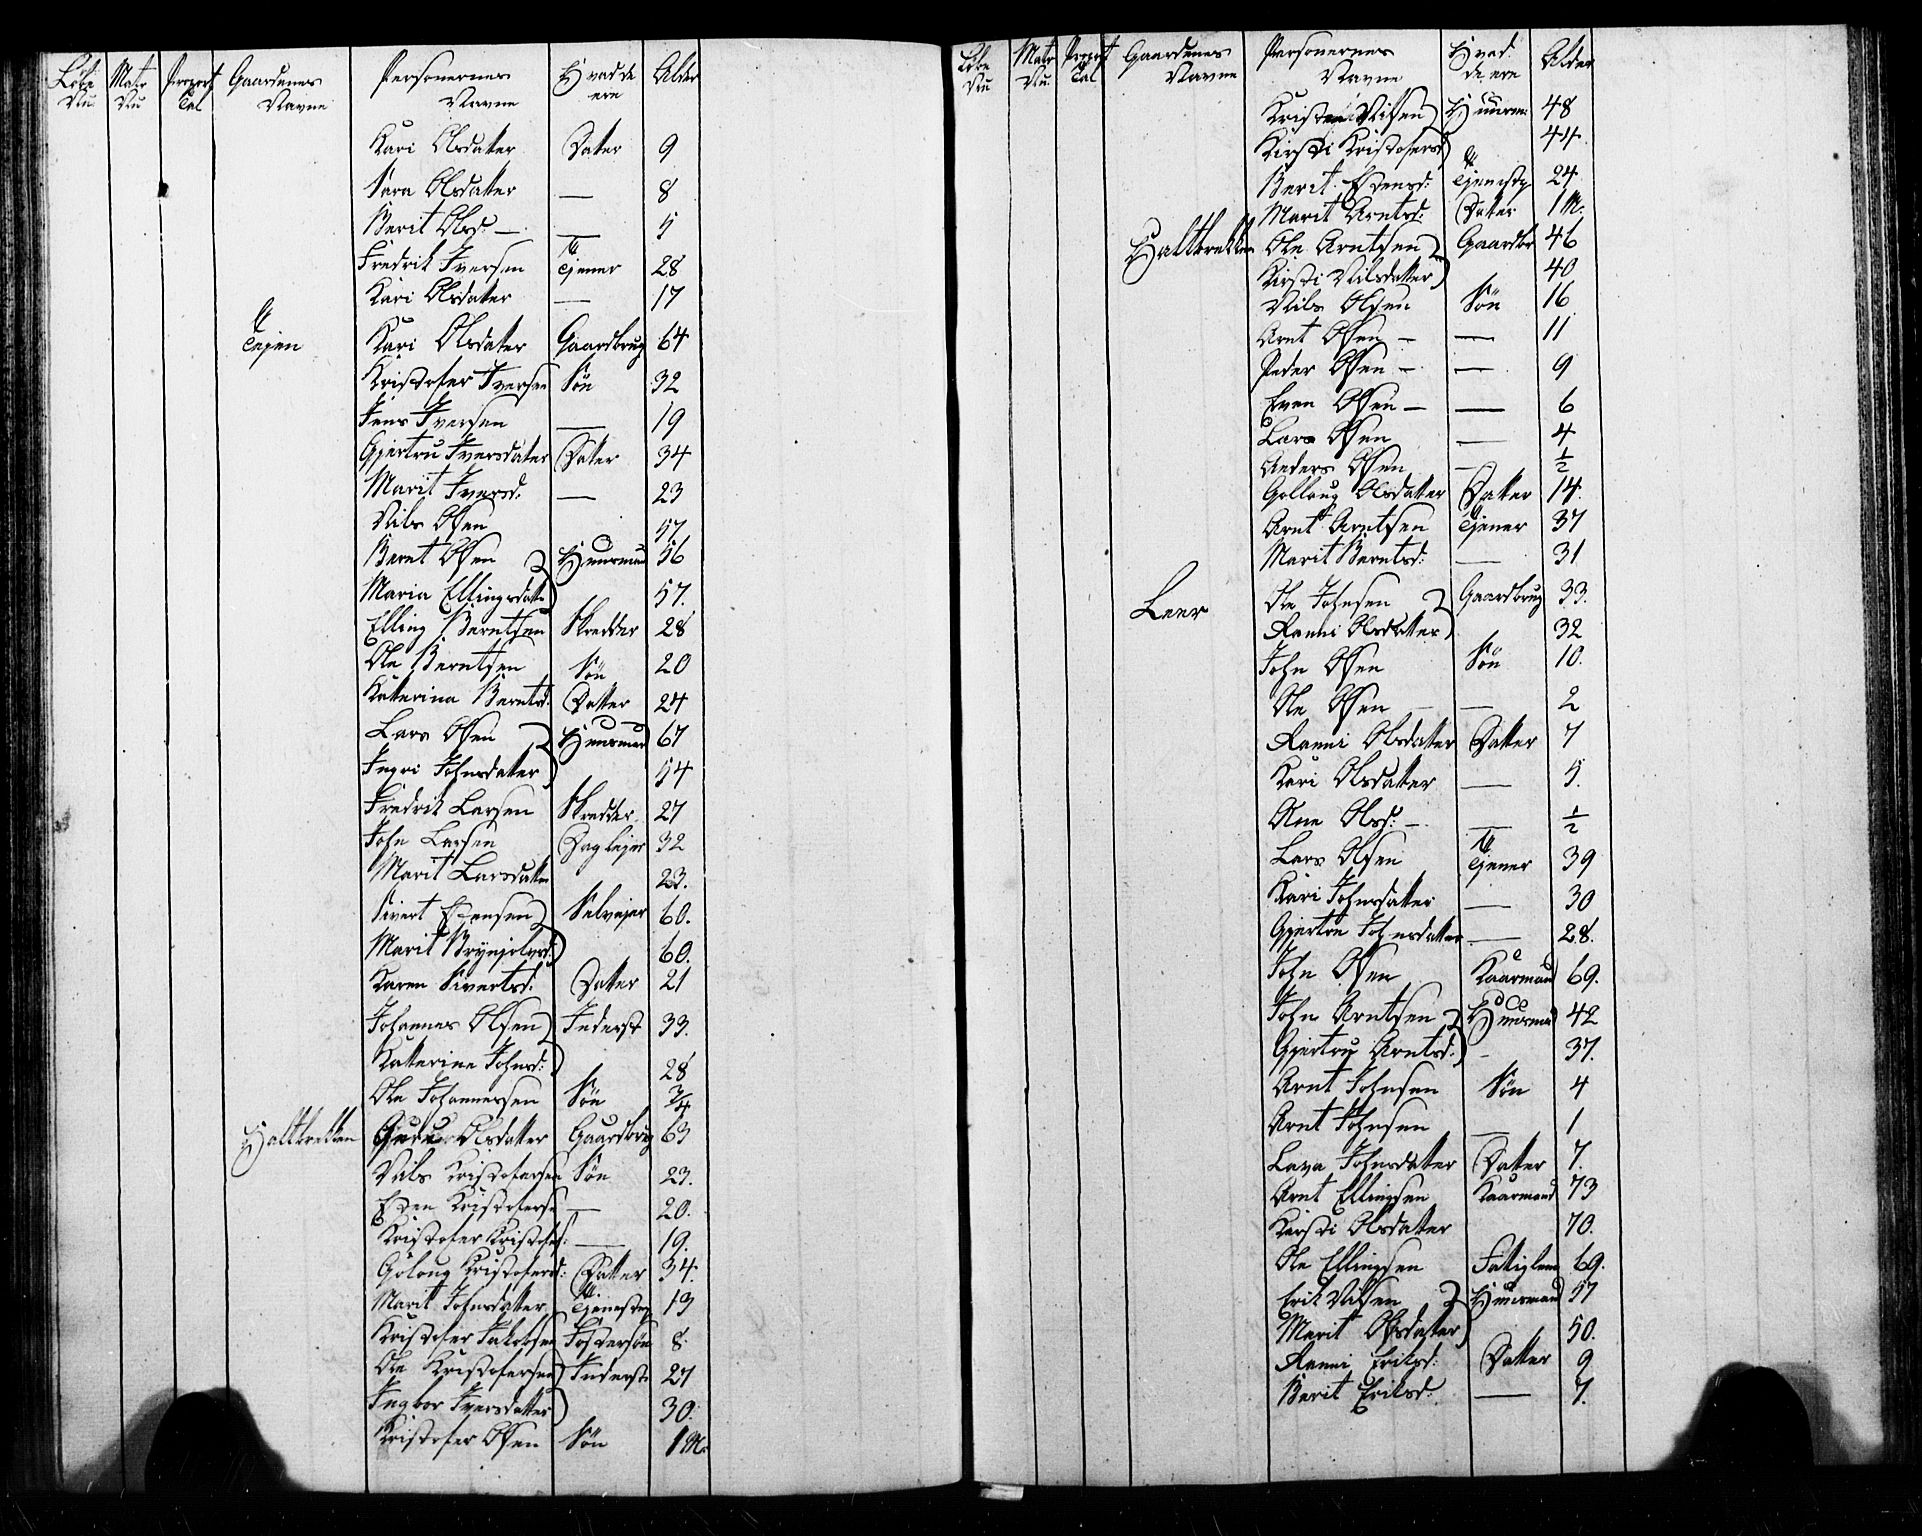 Löbe Nu | Matr Nu | Proport Tal | Gaardenes Navne | Personernes Navne | Hvad de ere | Alder
Kari Olsdatter Dater 9
Sara Olsdatter — 8
Berit Olsd — — 5
Fredrik Iversen Tjener 28
Kari Olsdatter — 17
Teien Kari Olsdatter Gaardbrug 64
Kristofer Iversen Sön 32
Jens Iversen — 19
Gjertru Iversdater Dater 34
Marit Iversd. — 23
Nils Olsen 57
Bernt Olsen Huusmand 56
Maria Ellingsdatter 57.
Elling Berntsen Skredder 28
Ole Berntsen Sön 20
Katterina Berntsd. Datter 24
Lars Olsen Huusmand 67
Ingri Johnsdatter 54
Fredrik Larsen Skredder 27
John Larsen Daglejer 32
Marit Larsdatter 23.
Sivert Estensen Selvejer 60.
Marit Brynjolvsd: 60.
Karen Sivertsd: Datter 21
Johannes Olsen Inderst 33.
Katterine Johnsd: 28
Ole Johannessen Sön 3/4
Haltbrekken Olsdatter Gaardbrug 63
Nils Kristofersen Sön 23.
Esten Kristoferse — 20.
Kristofer Kristofers: — 19.
Golong Kristofersd: Datter 34.
Marit Johnsdatter Tjenestep 13
Kristofer Jakobsen Fostersön 8
Ole Kristofersen Inderste 27
Ingbor Iversdatter 30.
Kristofer Olsen Sön 1 M:
Löbe Nu | Matr Nu. | Proport Tal | Gaardenes Navne | Personernes Navne | Hvad de ere | Alder
Kristen Nilsen Huusm: 48
Kirsti Kristofersd 44.
Berit Estensd: Tjenestp 24.
Marit Arntsd: Datter 1 M.
Haltbrekken Ole Arntsen Gaardbr 46
Kirsti Nilsdatter 40
Nils Olsen Sön 16
Arnt Olsen — — 11
Peder Olsen — — 9
Even Olsen — — 6
Lars Olsen — 4
Anders Olsen — 1/2
Gollaug Olsdatter Datter 14.
Arnt Arntsen Tjener 37
Marit Berntsd: — 31
Leer Ole Johnsen Gaardbrug 33.
Ranni Olsdatter 32
John Olsen Sön 10.
Ole Olsen — — 2
Ranni Olsdatter Datter 7
Kari Olsdatter — 5.
Ane Olsd: — — 1/2
Lars Olsen Tjener 39
Kari Johnsdatter — 30
Gjertru Johnsdatter — 28.
John Olsen Kaarmand 69.
John Arntsen Huusmand 42
Gjertru Arntsd: - 37.
Arnt Johnsen Sön 4
Arnt Johnsen — 1
Lava Johnsdatter Datter 7.
Arnt Ellingsen Kaarmand 73
Kirsti Olsdatter 70.
Ole Ellingsen Fattiglem 69.
Erik Nilsen Huusmand 57
Marit Olsdatter 50.
Ranni Eriksd: Datter 9
Berit Eriksd: — 7.